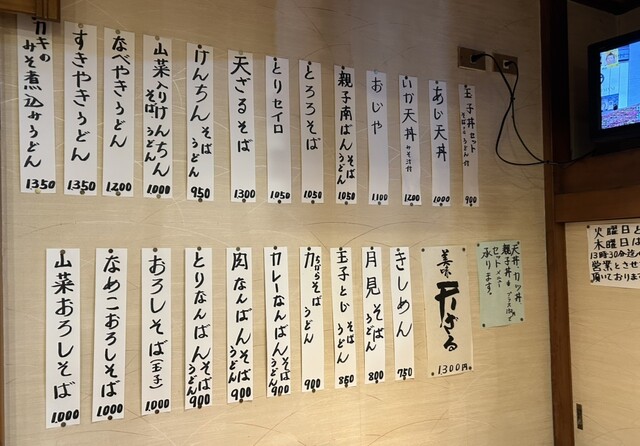 玉子丼セット
そば、うどん付
900
あじ天丼
1000
いか天丼
みそ汁付
1200
おじや
1100
親子南ばんそば
うどん
1050
とろろそば
1050
とりセイロ
1050
天ざるそば
1300
けんちんそば
うどん
950
山菜入りけんちん
そば、うどん
1,000
なべやきうどん
1200
すきやきうどん
1350
カキの
みそ煮込みうどん
1350
天丼 カツ丼
親子丼も
セットメニュー
承ります。
美味
天ざる
1300円
きしめん
750
月見そば
うどん
800
玉子とじそば
うどん
850
力そば
うどん
900
カレーなんばんそば
うどん
900
肉なんばんそば
うどん
900
とりなんばんそば
うどん
900
おろしそば(玉子)
1,000
なめこおろしそば
1,000
山菜おろしそば
1,000
火曜日と
木曜日は
13時30分迄
営業とさせ
頂いており